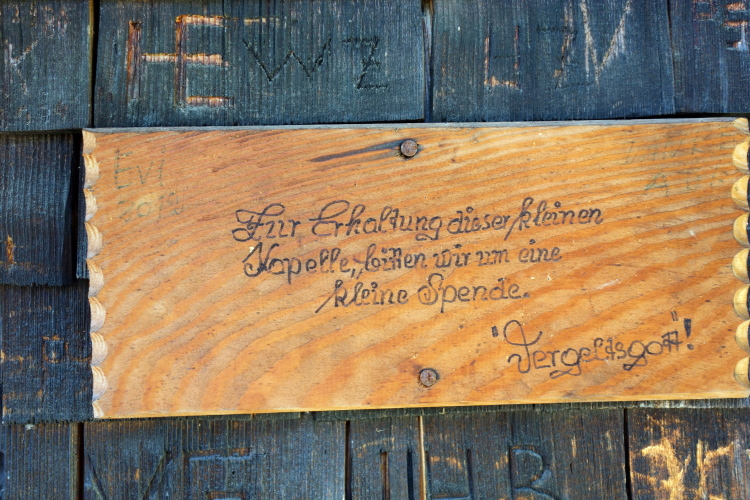 E W Z
EVI
2019
Für Erhaltung dieser kleinen
Kapelle, bitten wir um eine
kleine Spende.
"Vergeltsgott"!